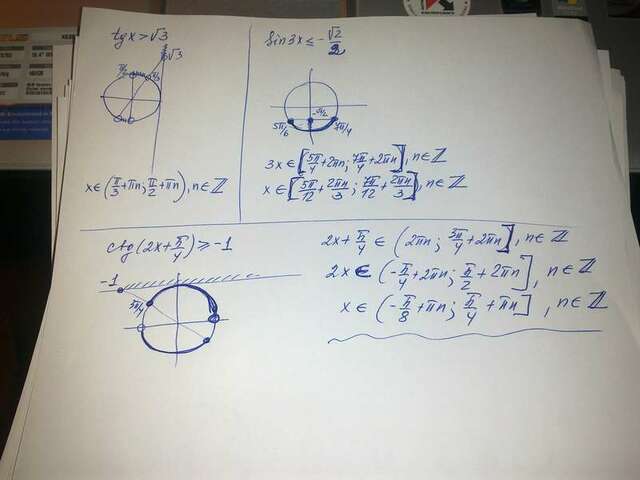 tgx > √3
√3
π/2
π/3
x ∈ (π/3 + πn; π/2 + πn), n ∈ ℤ
sin3x ≤ -√2/2
5π/6
7π/4
3x ∈ [5π/4 + 2πn; 7π/4 + 2πn], n ∈ ℤ
x ∈ [5π/12 + 2πn/3; 7π/12 + 2πn/3], n ∈ ℤ
ctg(2x + π/4) ≥ -1
-1
3π/4
2x + π/4 ∈ (2πn; 3π/4 + 2πn], n ∈ ℤ
2x ∈ (-π/4 + 2πn; π/2 + 2πn], n ∈ ℤ
x ∈ (-π/8 + πn; π/4 + πn], n ∈ ℤ